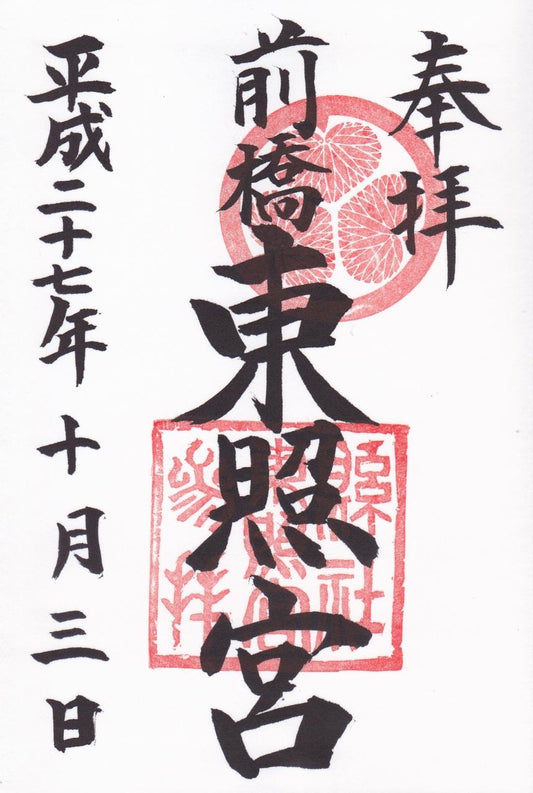 奉拝
前橋東照宮
平成二十七年十月三日
縣社
東照宮
参拝